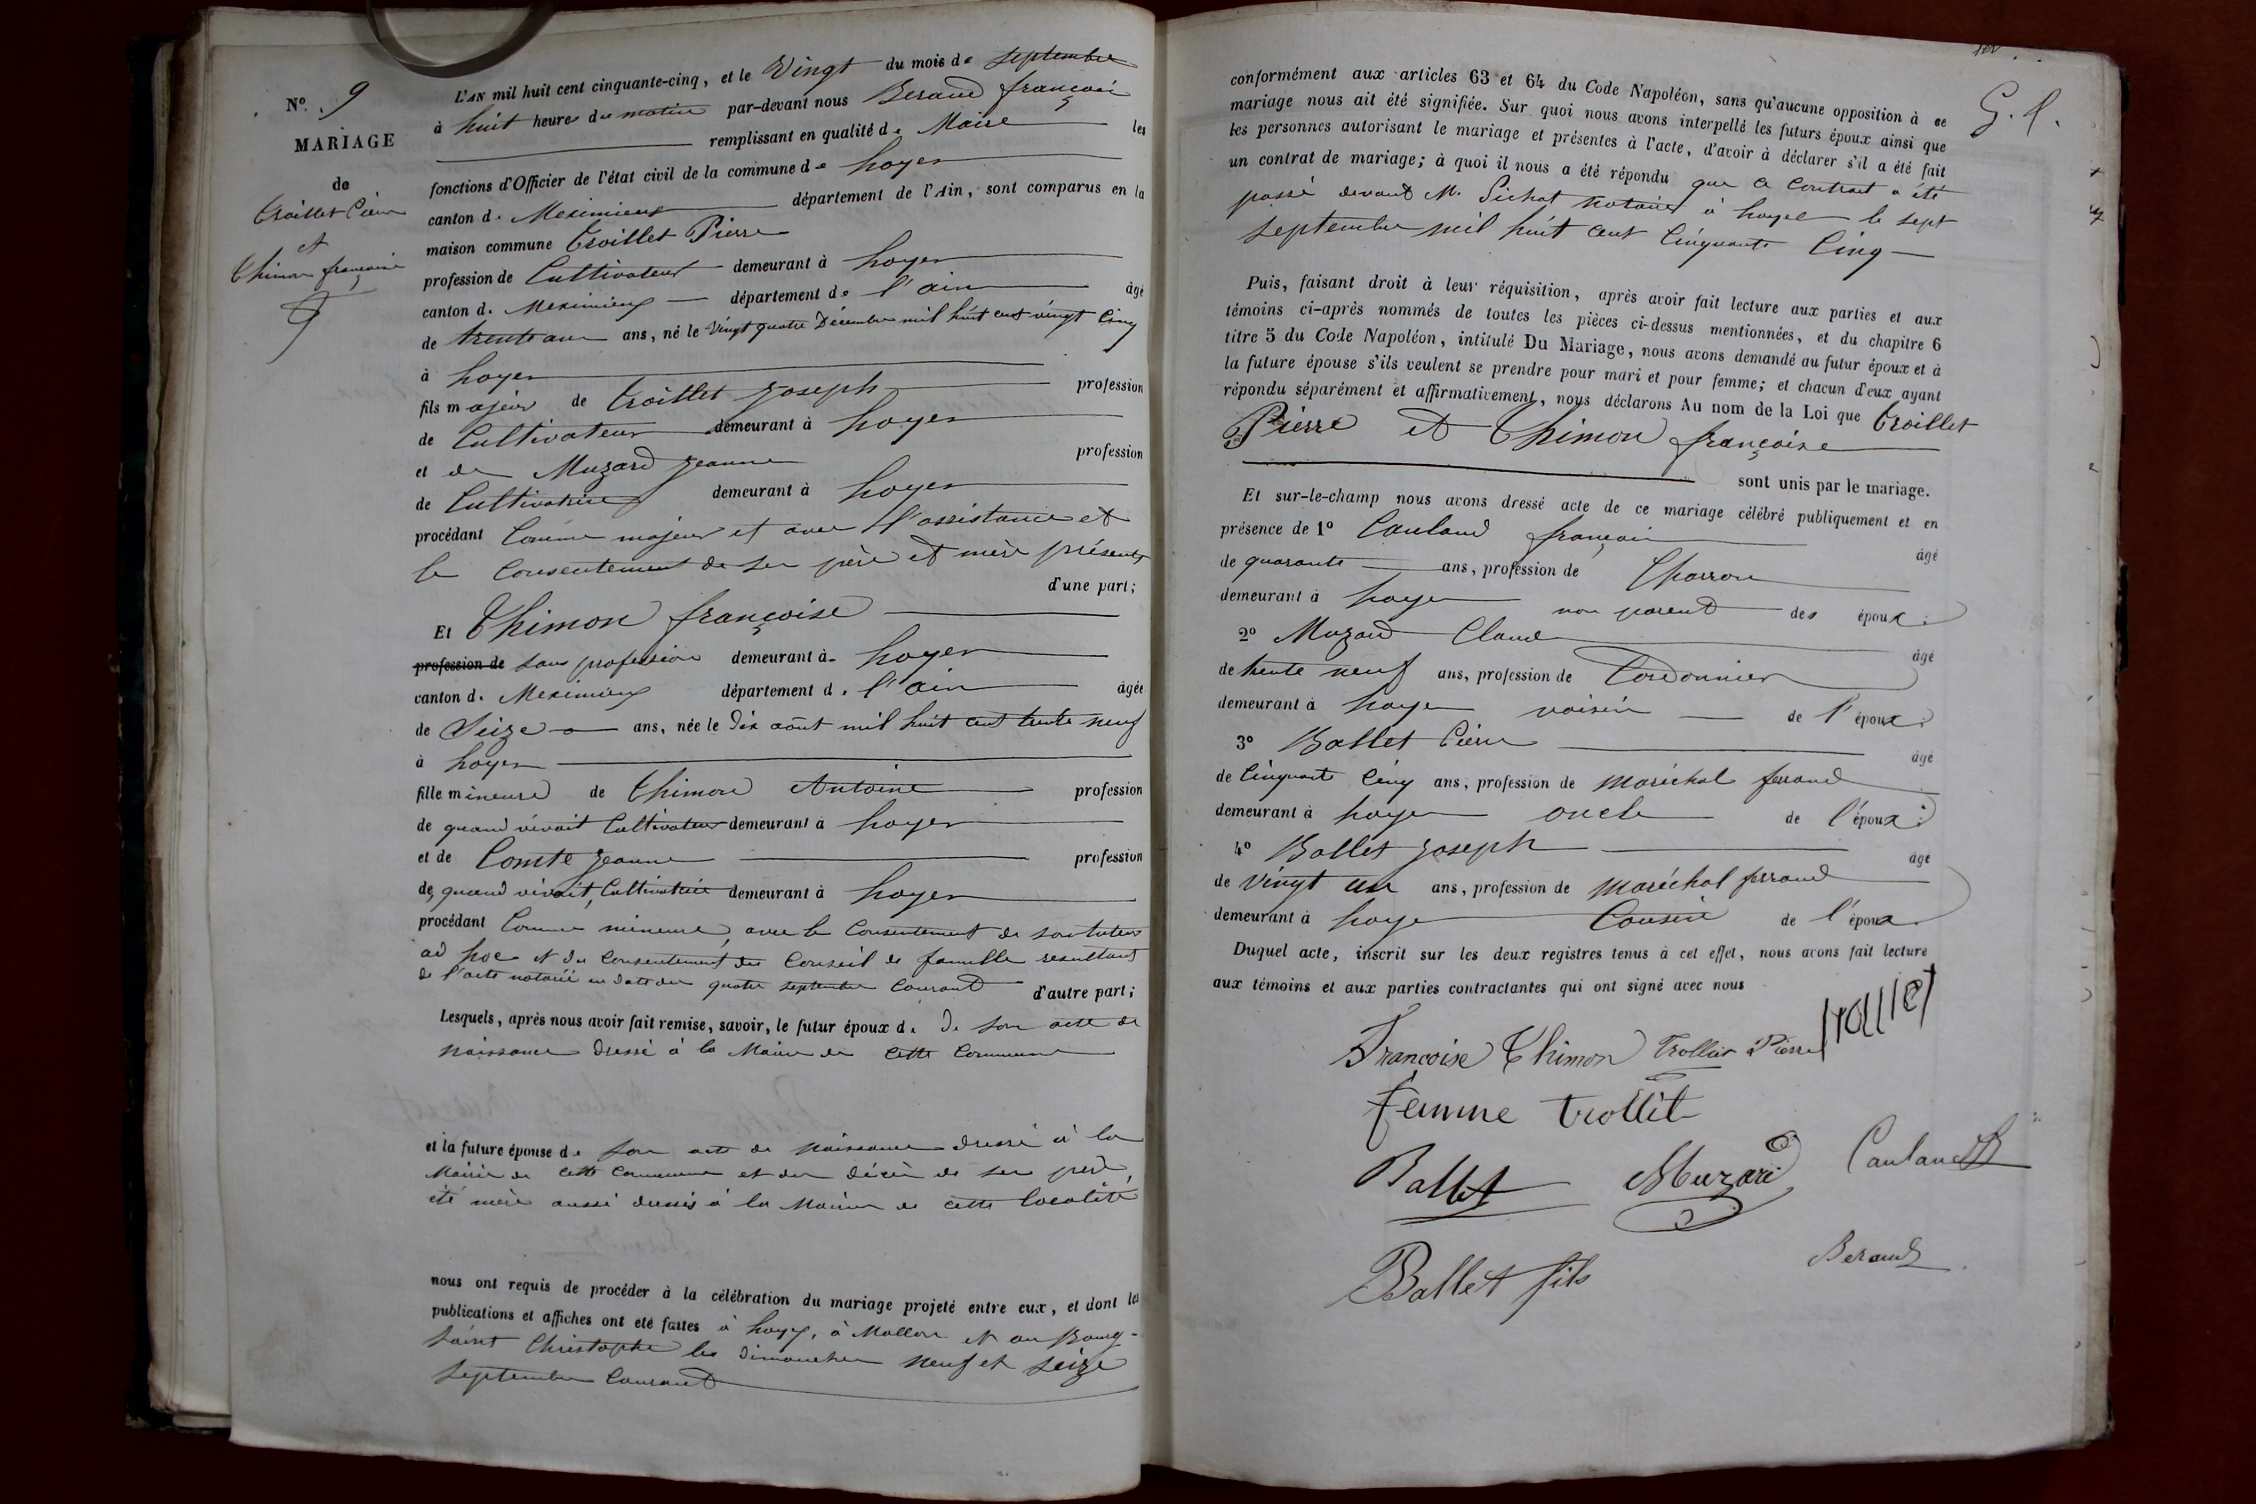 N.º 9
MARIAGE
de
Troillet Pierre
et
Thimon françoise
L'AN mil huit cent cinquante-cinq, et le Vingt du mois de septembre
à huit heures du matin par-devant nous Beraud françois
remplissant en qualité de Maire les
fonctions d'Officier de l'état civil de la commune de Loyes
canton de Meximieux département de l'Ain, sont comparus en la
maison commune Troillet Pierre
profession de Cultivateur demeurant à Loyes
canton de Meximieux département de l'ain âgé
de trente ans, né le Vingt quatre Décembre mil huit cent vingt Cinq
à Loyes
fils majeur de Troillet Joseph profession
de Cultivateur demeurant à Loyes
et de Muzard Jeanne profession
de Cultivatrice demeurant à Loyes
procédant Comme majeur et avec l'assistance et
le Consentement de ses père et mère présents
d'une part;
Et Thimon françoise
profession de sans profession demeurant à Loyes
canton de Meximieux département de l'ain âgée
de Seize ans, née le Dix août mil huit cent trente neuf
à Loyes
fille mineure de Thimon Antoine profession
de quand vivait Cultivateur demeurant à Loyes
et de Comte Jeanne profession
de, quand vivait, Cultivatrice demeurant à Loyes
procédant Comme mineure, avec le Consentement de son tuteur
ad hoc et du Consentement du Conseil de famille resultant
de l'acte notarié en date du quatre septembre Courant d'autre part;
Lesquels, après nous avoir fait remise, savoir, le futur époux de De son acte de
naissance dressé à la Mairie de Cette Commune
et la future épouse de son acte de naissance dressé à la
Mairie de cette Commune et du décès de ses père
et mère aussi dressés à la Mairie de cette localité
nous ont requis de procéder à la célébration du mariage projeté entre eux, et dont les
publications et affiches ont été faites à Loyes, à Mollon et au Bourg-
Saint Christophe les dimanches neuf et seize
septembre Courant
G. P.
conformément aux articles 63 et 64 du Code Napoléon, sans qu'aucune opposition à ce
mariage nous ait été signifiée. Sur quoi nous avons interpellé les futurs époux ainsi que
les personnes autorisant le mariage et présentes à l'acte, d'avoir à déclarer s'il a été fait
un contrat de mariage; à quoi il nous a été répondu que ce Contrat a été
passé devant M. Pichat notaire à Loyes le sept
septembre mil huit cent Cinquante Cinq
Puis, faisant droit à leur réquisition, après avoir fait lecture aux parties et aux
témoins ci-après nommés de toutes les pièces ci-dessus mentionnées, et du chapitre 6
titre 5 du Code Napoléon, intitulé Du Mariage, nous avons demandé au futur époux et à
la future épouse s'ils veulent se prendre pour mari et pour femme; et chacun d'eux ayant
répondu séparément et affirmativement, nous déclarons Au nom de la Loi que Troillet
Pierre et Thimon françoise
sont unis par le mariage.
Et sur-le-champ nous avons dressé acte de ce mariage célébré publiquement et en
présence de 1º Cauland françois âgé
de quarante ans, profession de Charron
demeurant à Loyes non parent des époux:
2º Muzard Claude âgé
de trente neuf ans, profession de Cordonnier
demeurant à Loyes voisin de l'époux:
3º Ballet Pierre âgé
de Cinquante Cinq ans, profession de maréchal ferrand
demeurant à Loyes oncle de l'époux:
4º Ballet Joseph âgé
de Vingt un ans, profession de maréchal ferrand
demeurant à Loyes Cousin de l'époux
Duquel acte, inscrit sur les deux registres tenus à cet effet, nous avons fait lecture
aux témoins et aux parties contractantes qui ont signé avec nous
Françoise Thimon Trolliet Pierre trolliet
femme trollit
Ballet Muzard Cauland
Ballet fils Beraud